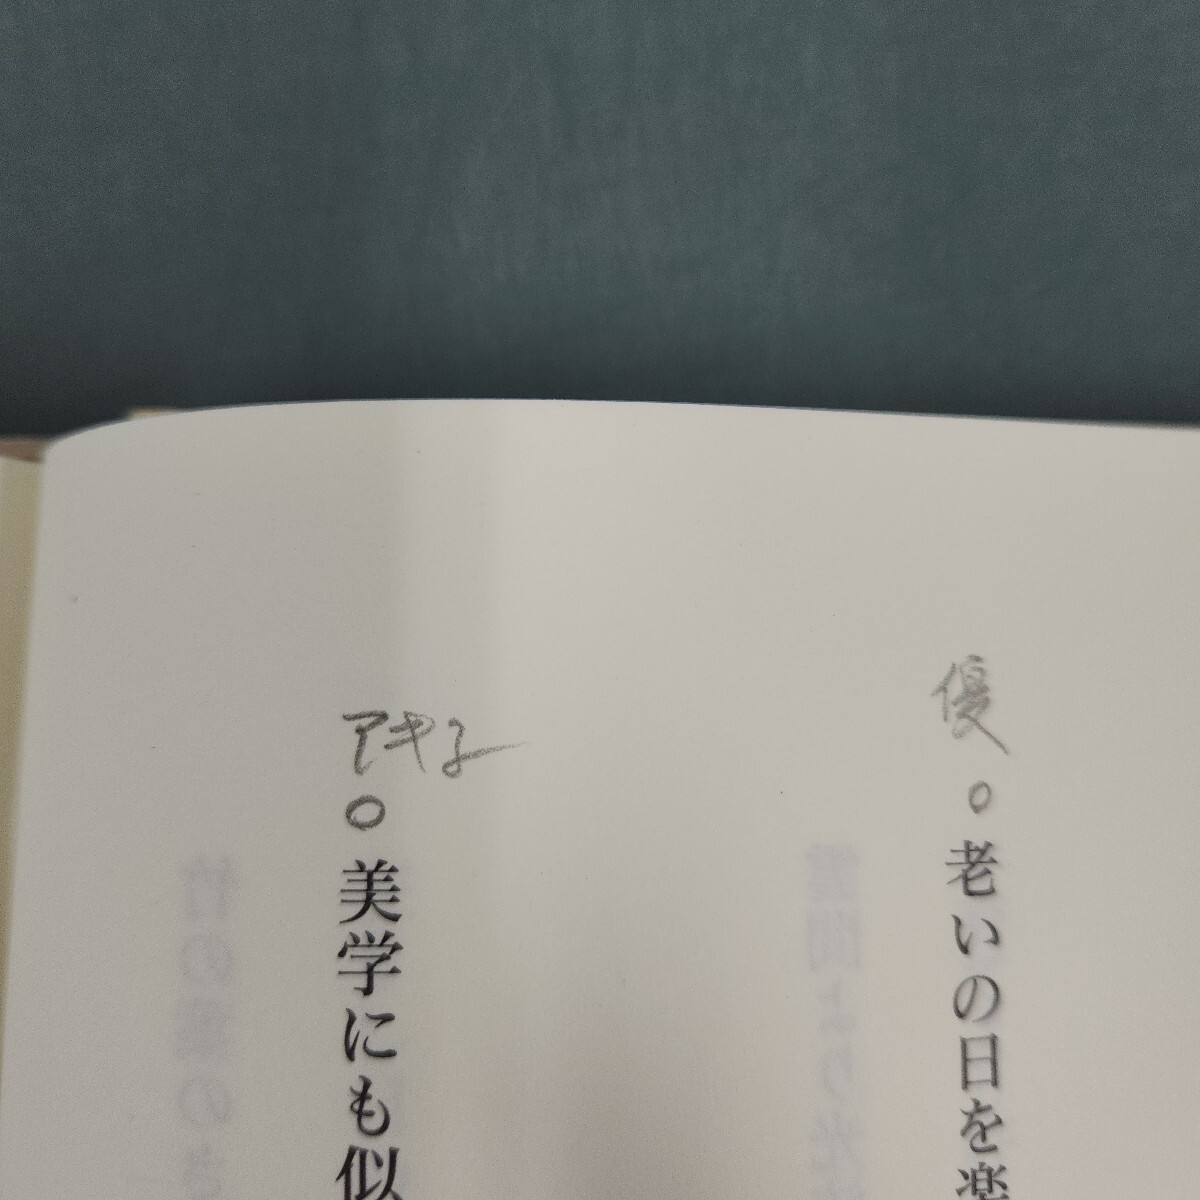 優
○老いの日を楽
アキ子
○美学にも似